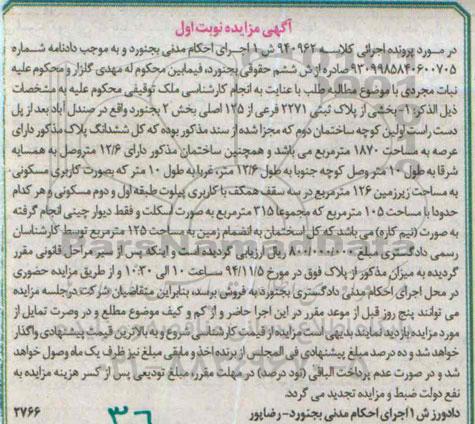 آگهی مزایده نوبت اول
در مورد پرونده اجرائی کلاسه ۹۴۰۹۶۲ ش ۱ اجرای احکام مدنی بجنورد و به موجب دادنامه شماره
۹۳۰۹۹۸۵۸۴۰۶۰۰۷۰۵ صادره از ش ششم حقوقی بجنورد، فیمابین محکوم له مهدی گلزار و محکوم علیه
نبات مجردی با موضوع مطالبه طلب با عنایت به انجام کارشناسی ملک توقیفی محکوم علیه به مشخصات
ذیل الذکر: ۱- بخشی از پلاک ثبتی ۲۲۷۱ فرعی از ۱۲۵ اصلی بخش ۲ بجنورد واقع در صندل آباد بعد از پل
دست راست اولین کوچه ساختمان دوم که مجزا شده از سند مذکور بوده که کل ششدانگ پلاک مذکور دارای
عرصه به مساحت ۱۸۷۰ مترمربع می باشد و همچنین ساختمان مذکور دارای ۱۲/۶ متر وصل به همسایه
شرقا به طول ۱۰ متر وصل کوچه جنوبا به طول ۱۲/۶ متر، غربا به طول ۱۰ متر که بصورت کاربری مسکونی
به مساحت زیرزمین ۱۲۶ مترمربع در سه سقف همکف با کاربری پیلوت طبقه اول و دوم مسکونی و هر کدام
حدودا با مساحت ۱۰۵ مترمربع که مجموعا ۳۱۵ مترمربع به صورت اسکلت و فقط دیوار چینی انجام گرفته
به صورت (نیم کاره) می باشد که کل ساختمان به انضمام زمین به مساحت ۱۲۵ مترمربع توسط کارشناسان
رسمی دادگستری مبلغ ۸۰۰/۰۰۰/۰۰۰ ریال ارزیابی گردیده است و اینکه پس از سیر مراحل قانونی مقرر
گردیده به میزان مذکور از پلاک فوق در مورخ ۹۴/۱۱/۵ ساعت ۱۰ الی ۱۰:۳۰ و از طریق مزایده حضوری
در محل اجرای احکام مدنی دادگستری بجنورد به فروش برسد، بنابراین متقاضیان شرکت در جلسه مزایده
می توانند پنج روز قبل از موعد مقرر در این اجرا حاضر و از کم و کیف موضوع مطلع و در صورت تمایل از
مورد مزایده بازدید نمایند بدیهی است مزایده از قیمت کارشناسی شروع و به بالاترین قیمت پیشنهادی واگذار
خواهد شد و ده درصد مبلغ پیشنهادی فی المجلس از برنده اخذ و مابقی مبلغ نیز ظرف یک ماه وصول خواهد
شد و در صورت عدم پرداخت الباقی (نود درصد) در مهلت مقرر، مبلغ تودیعی پس از کسر هزینه مزایده به
نفع دولت ضبط و مزایده تجدید می گردد.
دادورز ش ۱ اجرای احکام مدنی بجنورد - رضاپور ۲۷۶۶
۳۶